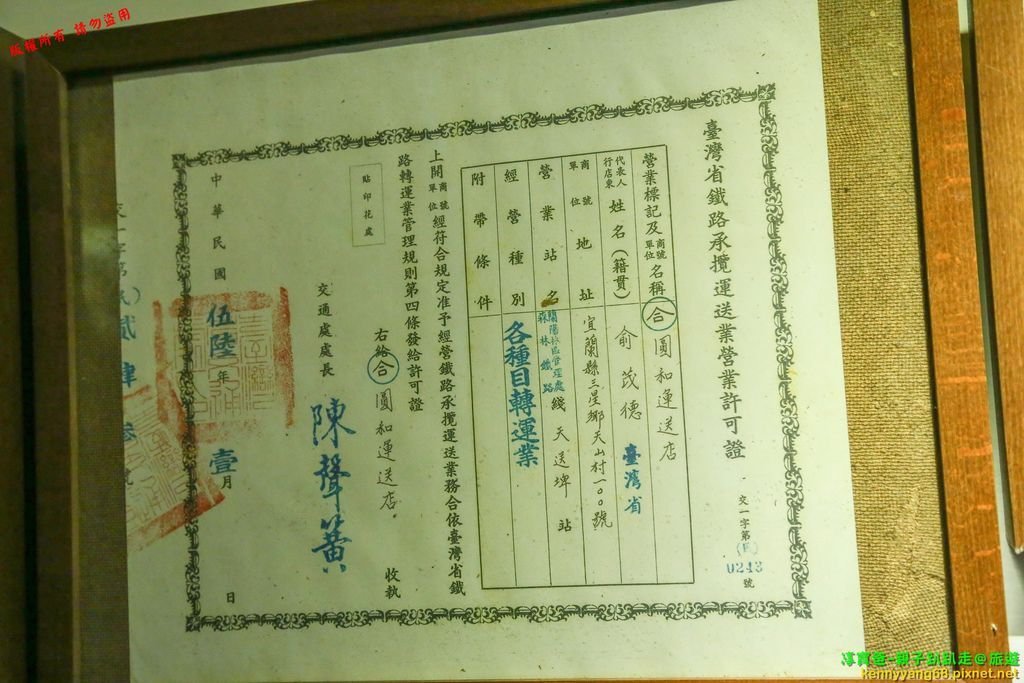 版權所有 請勿盜用
臺灣省鐵路承攬運送業營業許可證
交一字第
0243
號
營業標記及商號單位名稱 合 圓和運送店
代表人行店東姓名(籍貫) 俞茂德 臺灣省
商號單位地址 宜蘭縣三星鄉天山村一〇〇號
營業站名 蘭陽林區管理處森林鐵路綫天送埤站
經營種別 各種目轉運業
附帶條件
上開商號單位經符合規定准予經營鐵路承攬運送業務合依臺灣省鐵
路轉運業管理規則第四條發給許可證
貼印花處
右給 合 圓和運送店 收執
交通處處長 陳聲簧
中華民國伍陸年壹月 日
貳肆叁號
淳寶爸-親子趴趴走@旅遊
kennyyang68.pixnet.net